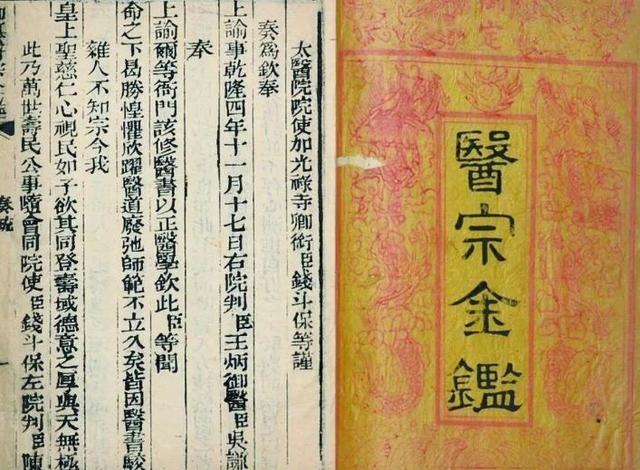 醫宗金鑑
太醫院院使加光祿寺卿銜臣錢斗保等謹
奏為欽奉
上諭事乾隆四年十一月十七日右院判臣王炳御醫臣吳謙
奉
上諭爾等衙門該修醫書以正醫學欽此臣等聞
命之下曷勝惶懼欣躍醫道廢弛師範不立久矣皆因醫書駁
雜人不知宗今我
皇上聖慈仁心視民如子欲其同登壽域德意之厚與天無極
此乃萬世壽民公事隨會同院使臣錢斗保左院判臣陳
奏疏